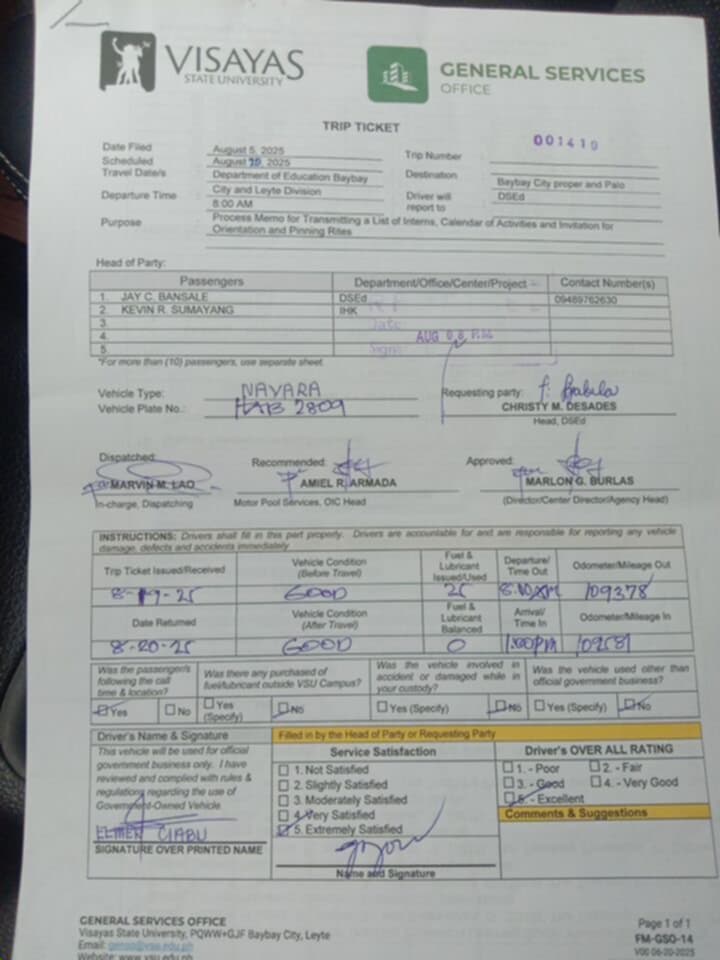 VISAYAS
STATE UNIVERSITY
GENERAL SERVICES
OFFICE
TRIP TICKET
001410
Date Filed August 5, 2025
Scheduled Travel Date/s August 20, 2025
Trip Number
Department of Education Baybay City and Leyte Division
Destination Baybay City proper and Palo
Departure Time 8:00 AM
Driver will report to DSEd
Purpose Process Memo for Transmitting a List of Interns, Calendar of Activities and Invitation for Orientation and Pinning Rites
Head of Party:
Passengers Department/Office/Center/Project Contact Number(s)
1. JAY C. BANSALE DSEd 09489762630
2. KEVIN R. SUMAYANG IHK
3.
4.
5.
*For more than (10) passengers, use separate sheet.
Vehicle Type: NAVARA
Vehicle Plate No.: 2809
Requesting party:
CHRISTY M. DESADES
Head, DSEd
Dispatched: Recommended: Approved:
MARVIN M. LAO AMIEL R. ARMADA MARLON G. BURLAS
In-charge, Dispatching Motor Pool Services, OIC Head (Director/Center Director/Agency Head)
INSTRUCTIONS: Drivers shall fill in this part properly. Drivers are accountable for and are responsible for reporting any vehicle damage, defects and accidents immediately
Trip Ticket Issued/Received Vehicle Condition (Before Travel) Fuel & Lubricant Issued/Used Departure/Time Out Odometer/Mileage Out
8-19-25 GOOD 25 8:10 AM 109378
Date Returned Vehicle Condition (After Travel) Fuel & Lubricant Balanced Arrival/Time In Odometer/Mileage In
8-20-25 GOOD 0 1:00PM
Was the passenger/s following the call time & location? Was there any purchased of fuel/lubricant outside VSU Campus? Was the vehicle involved in accident or damaged while in your custody? Was the vehicle used other than official government business?
Yes No Yes (Specify) No Yes (Specify) No Yes (Specify) No
Driver's Name & Signature
This vehicle will be used for official government business only. I have reviewed and complied with rules & regulations regarding the use of Government-Owned Vehicle.
SIGNATURE OVER PRINTED NAME
Filled in by the Head of Party or Requesting Party
Service Satisfaction
1. Not Satisfied
2. Slightly Satisfied
3. Moderately Satisfied
4. Very Satisfied
5. Extremely Satisfied
Name and Signature
Driver's OVER ALL RATING
1. - Poor 2. - Fair
3. - Good 4. - Very Good
5. - Excellent
Comments & Suggestions
GENERAL SERVICES OFFICE
Visayas State University, PQWW+GJF Baybay City, Leyte
Email: gensso@vsu.edu.ph
Website: www.vsu.edu.ph
Page 1 of 1
FM-GSO-14
V00 06-20-2025